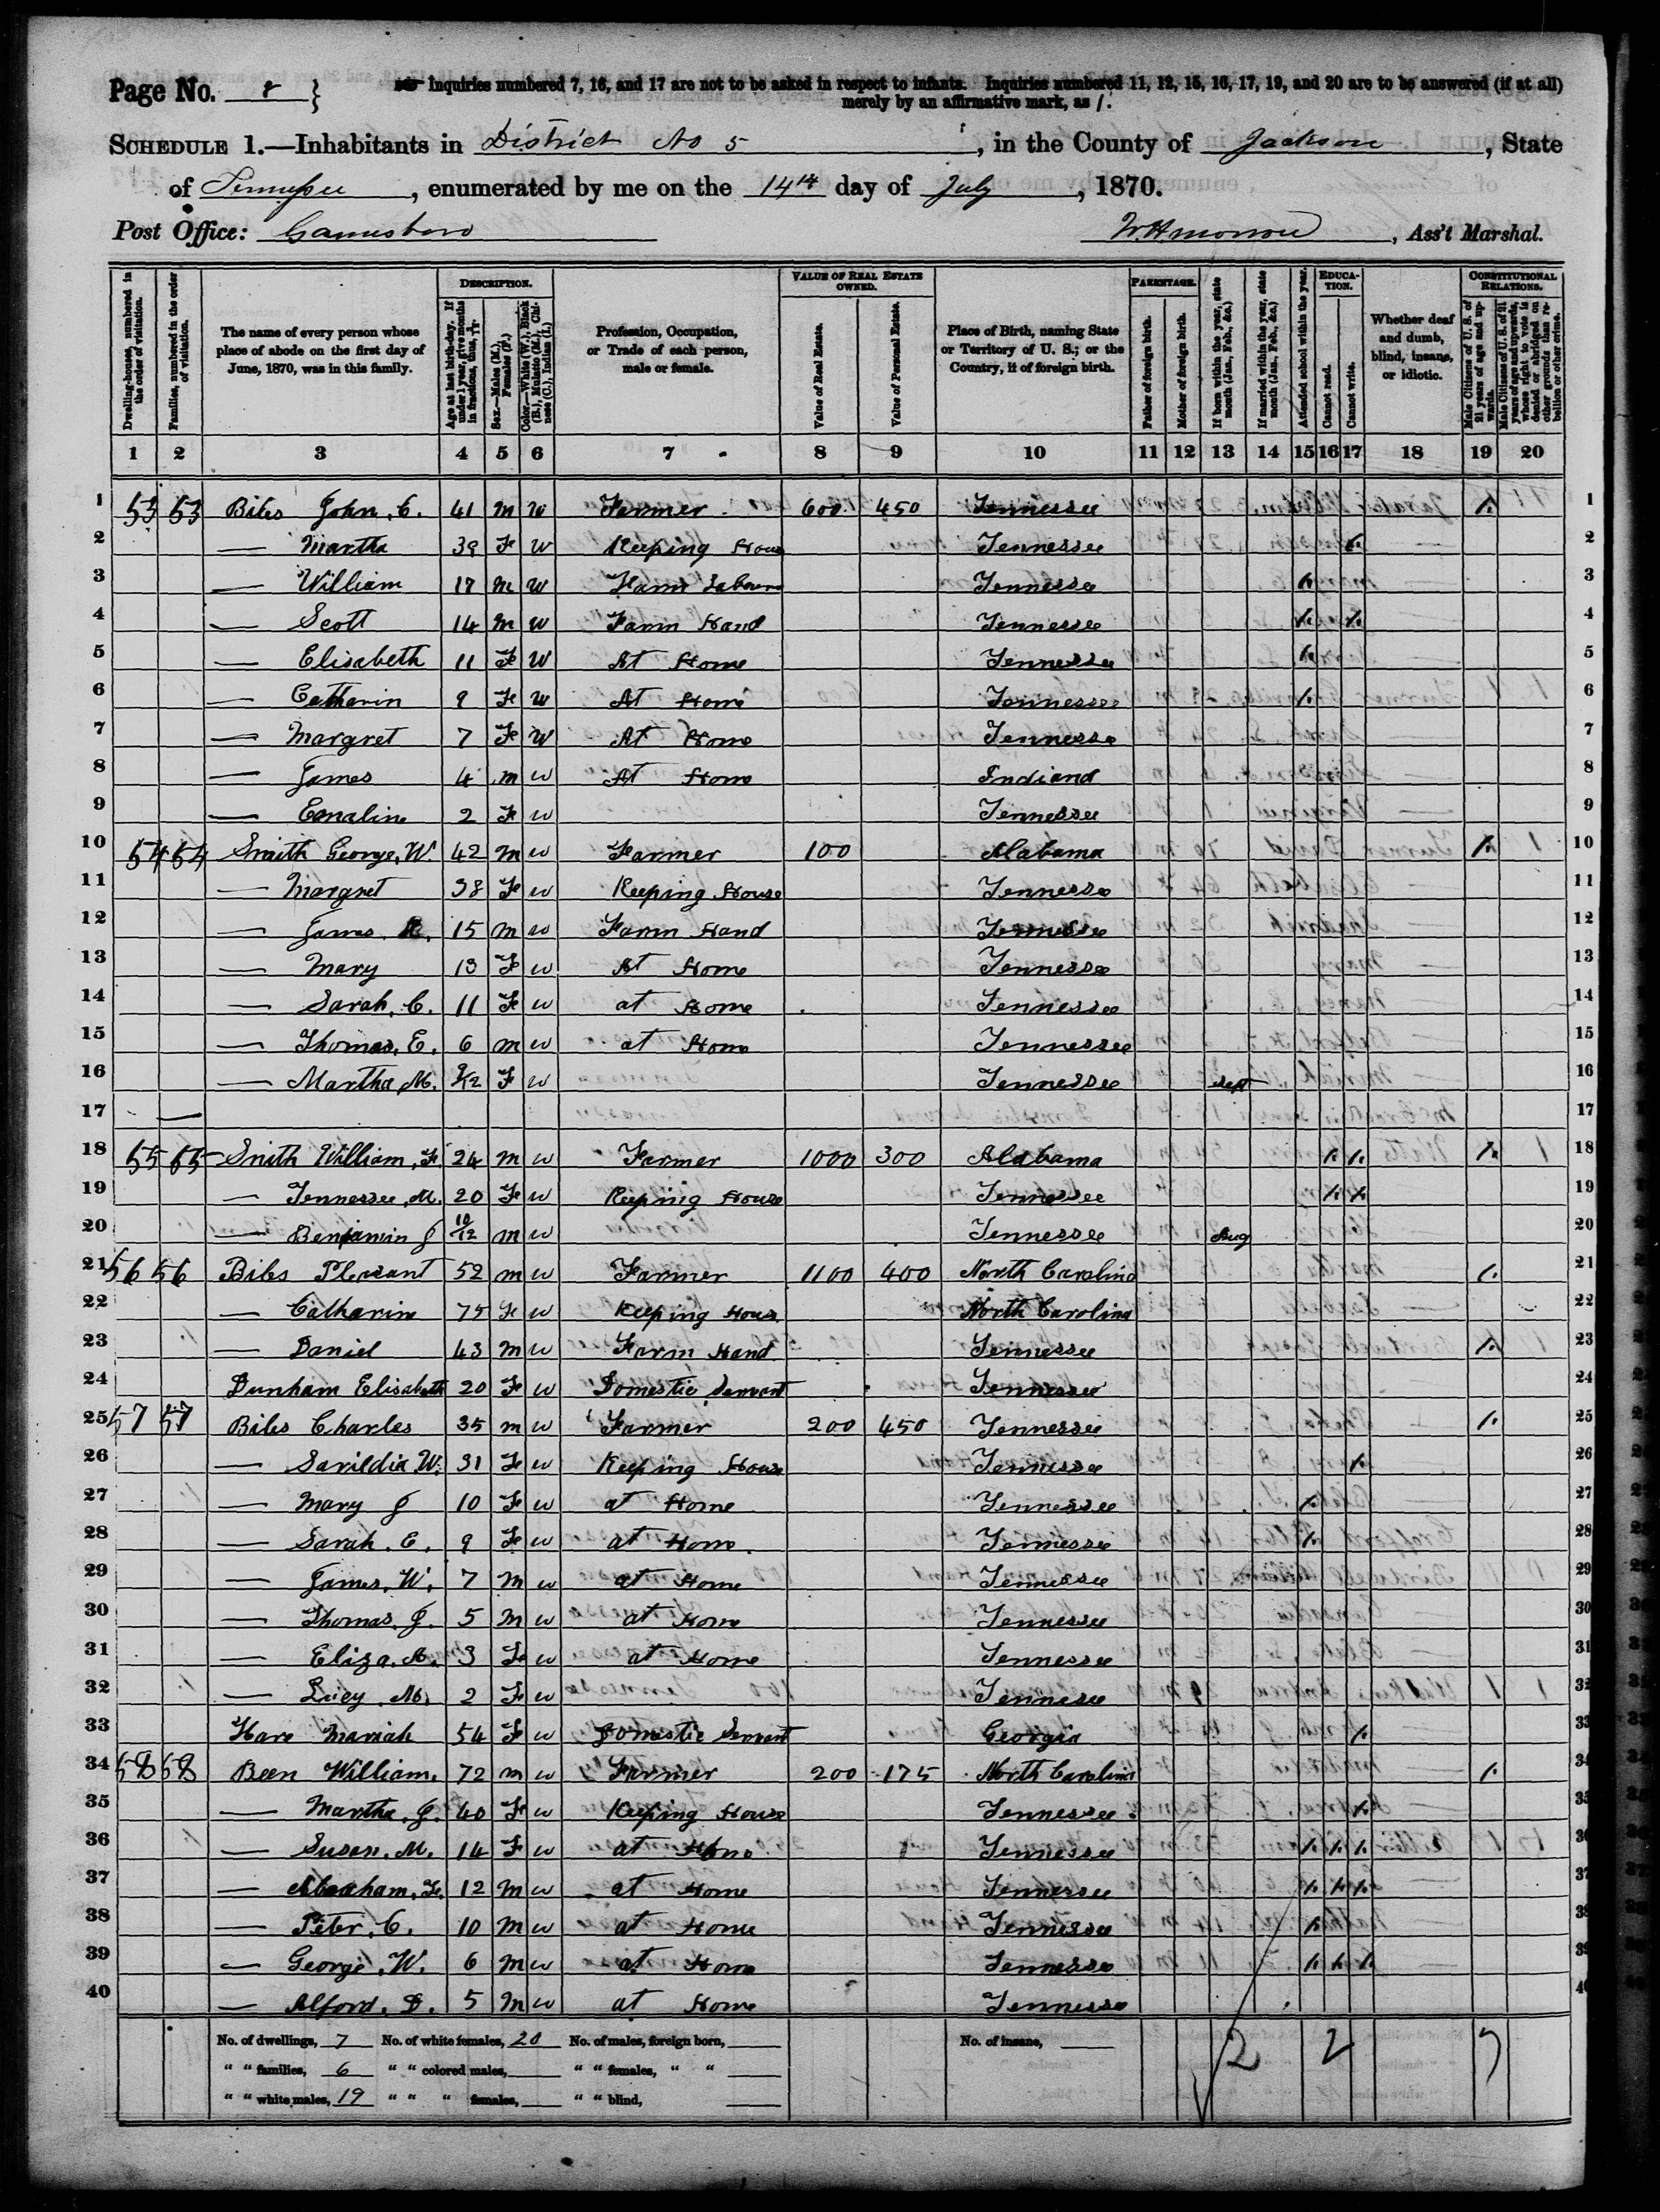 Page No. 8 } Inquiries numbered 7, 16, and 17 are not to be asked in respect to infants. Inquiries numbered 11, 12, 15, 16, 17, 19, and 20 are to be answered (if at all)
merely by an affirmative mark, as /.
Schedule 1.—Inhabitants in District No 5, in the County of Jackson, State
of Tennessee, enumerated by me on the 14th day of July, 1870.
Post Office: Gainesboro , Ass't Marshal.
Dwelling-houses, numbered in the order of visitation.
Families, numbered in the order of visitation.
The name of every person whose place of abode on the first day of June, 1870, was in this family.
Description.
Age at last birth-day. If under 1 year, give months in fractions, thus, 3/12
Sex.—Males (M.), Females (F.)
Color.—White (W.), Black (B.), Mulatto (M.), Chinese (C.), Indian (I.)
Profession, Occupation, or Trade of each person, male or female.
Value of Real Estate owned.
Value of Real Estate.
Value of Personal Estate.
Place of Birth, naming State or Territory of U. S.; or the Country, if of foreign birth.
Parentage.
Father of foreign birth.
Mother of foreign birth.
If born within the year, state month (Jan., Feb., &c.)
If married within the year, state month (Jan., Feb., &c.)
Attended school within the year.
Education.
Cannot read.
Cannot write.
Whether deaf and dumb, blind, insane, or idiotic.
Constitutional Relations.
Male Citizens of U. S. of 21 years of age and upwards.
Male Citizens of U. S. of 21 years of age and upwards, whose right to vote is denied or abridged on other grounds than rebellion or other crime.
1 2 3 4 5 6 7 8 9 10 11 12 13 14 15 16 17 18 19 20
1 53 53 Biles John, C. 41 M W Farmer 600 450 Tennessee / 1
2 — Martha 39 Fe W Keeping Hous Tennessee / 2
3 — William 17 M W Farm Labourer Tennessee / 3
4 — Scott 14 M W Farm Hand Tennessee / / 4
5 — Elisabeth 11 Fe W At Home Tennessee / 5
6 — Catharin 9 Fe W At Home Tennessee / 6
7 — Margret 7 Fe W At Home Tennessee 7
8 — James 4 M W At Home Indiana 8
9 — Emaline 2 Fe W Tennessee 9
10 54 54 Smith George, W. 42 M W Farmer 100 Alabama / 10
11 — Margret 38 Fe W Keeping House Tennessee 11
12 — James R. 15 M W Farm Hand Tennessee 12
13 — Mary 13 Fe W At Home Tennessee 13
14 — Sarah, C. 11 Fe W at Home Tennessee 14
15 — Thomas, E. 6 M W at Home Tennessee 15
16 — Martha, M. 9/12 F W Tennessee Sept 16
17 — 17
18 55 55 Smith William, F. 24 M W Farmer 1000 300 Alabama / / / 18
19 — Tennessee, M. 20 Fe W Keeping House Tennessee / / 19
20 — Benjamin J 10/12 M W Tennessee Aug 20
21 56 56 Biles Pleasant 52 M W Farmer 1100 400 North Carolina / 21
22 — Catharine 75 Fe W Keeping Hous North Carolina 22
23 — Daniel 43 M W Farm Hand Tennessee / 23
24 Dunham Elisabeth 20 Fe W Domestic Servant Tennessee 24
25 57 57 Biles Charles 35 M W Farmer 200 450 Tennessee / 25
26 — Sarildia W. 31 Fe W Keeping House Tennessee / 26
27 — Mary J 10 Fe W at Home Tennessee / 27
28 — Sarah, E. 9 Fe W at Home Tennessee / 28
29 — James, W. 7 M W at Home Tennessee 29
30 — Thomas, J. 5 M W at Home Tennessee 30
31 — Eliza, A. 3 Fe W at Home Tennessee 31
32 — Lucy, M. 2 Fe W Tennessee 32
33 Hare Mariah 54 Fe W Domestic Servant Georgia / 33
34 58 58 Been William. 72 M W Farmer 200 175 North Carolina / 34
35 — Martha, J. 40 Fe W Keeping House Tennessee / 35
36 — Susan, M. 14 F W at Home Tennessee / / / 36
37 — Abraham, F. 12 M W at Home Tennessee / / / 37
38 — Peter, C. 10 M W at Home Tennessee / 38
39 — George, W. 6 M W at Home Tennessee / / / 39
40 — Alford, D. 5 M W at Home Tennessee 40
No. of dwellings, 7 No. of white females, 20 No. of males, foreign born, No. of insane, 2 2 7
" " families, 6 " " colored males, " " females, " "
" " white males, 19 " " " females, " " blind,